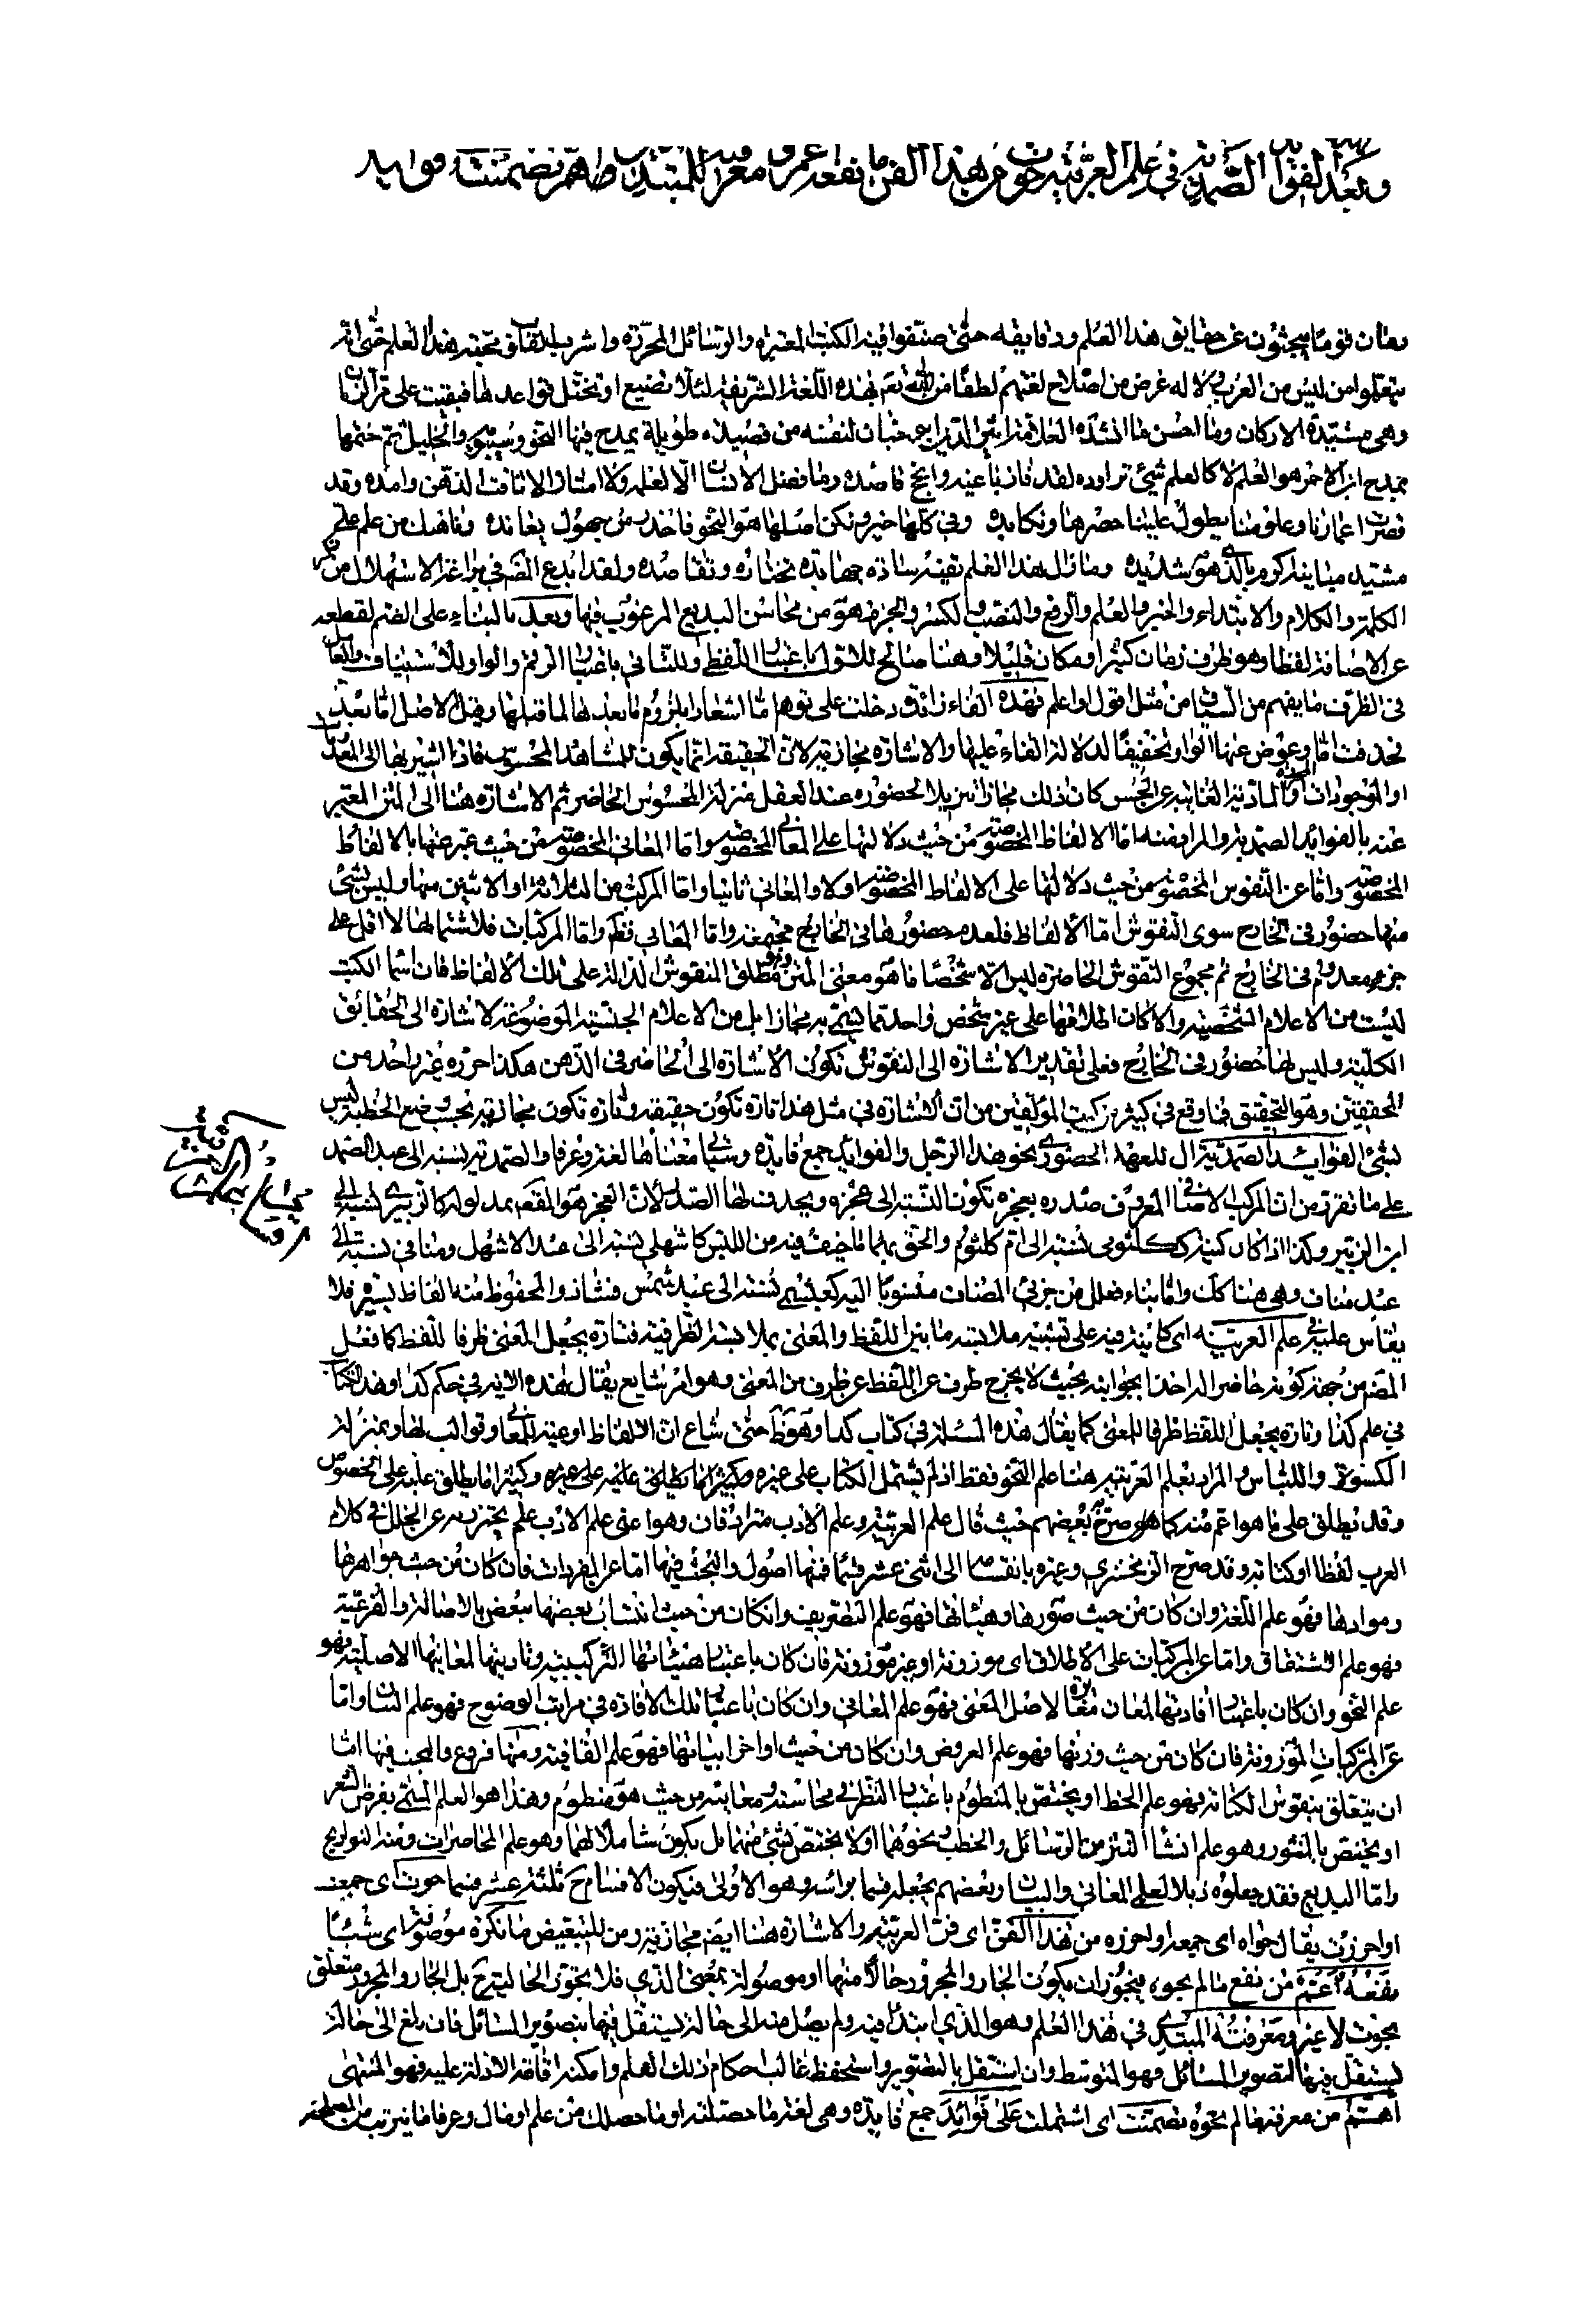 وبعد الفوائد الصمدية في علم العربية حوت من هذا الفن ما نفعه اعم ومعرفته للمبتدئين اهم تضمنت فوايد
زمان قوما يبحثون عن حقايق هذا العلم ودقايقه حتى صنفوا فيه الكتب المعتبرة والرسائل المحررة واشرب القلوب محبة هذا العلم حتى انه
يتعلموا من ليس من العرب لا له غرض من اصلاح لغتهم لطفا من الله تعم بهذه اللغة الشريفة لئلا تضيع او تختل قواعدها فبقيت على
وهي مشيدة الاركان وما احسن ما انشده العلامة اثير الدين ابي حيان لنفسه من قصيدة طويلة يمدح فيها النحو وسيبويه والخليل ثم ختمها
بمدح ابن الاحمر هو العلم لا كالعلم شيء تراوده لقد فاز باغيه وانجح قاصده وما فضل الانسان الا بعلمه ولا امتاز الا ثاقب الذهن وامده وقد
قصرت اعمارنا وعلومنا يطول علينا حصرها ونكابده وفي كلها خير ولكن اصلها هو النحو فاحذر من جهول يعانده وناهيك من علم علي
مشيد مبانيه اكرم بالذي هو شائده وما زال هذا العلم تنميه سادة جهابذة تختاره وتقاصده ولقد ابدع المصنف في براعة الاستهلال من ذكر
الكلمة والكلام والابتداء والخبر والعلم والرفع والنصب والكسر والجر فهو من محاسن البديع المرغوب فيها وبعد بالبناء على الضم لقطعه
عن الاضافة لفظا وهو ظرف زمان كثيرا ومكان قليلا وهنا صالح للاول باعتبار اللفظ وللثاني باعتبار الرقم والواو للاستيناف والعامل
في الظرف ما يفهم من السياق من مثل اقول او اعلم فهذه الفاء زائدة دخلت على توهم اما اشعارا بلزوم ما بعدها لما قبلها وقيل الاصل اما بعد
فحذفت اما وعوض عنها الواو تخفيفا لدلالة الفاء عليها والاشارة مجازية لان الحقيقة انما يكون للمشاهد المحسوس فاذا اشير بها الى المعدومات
او الموجودات المادية الغائبة عن الحس كان ذلك مجازا تنزيلا لحضوره عند العقل منزلة المحسوس الحاضر ثم الاشارة هنا الى المتن المعبر
عنه بالفوائد الصمدية والمراد منه اما الالفاظ المخصوصة من حيث دلالتها على المعاني المخصوصة واما المعاني المخصوصة من حيث عبر عنها بالالفاظ
المخصوصة واما عن النقوش المخصوصة من حيث دلالتها على الالفاظ المخصوصة اولا والمعاني ثانيا واما المركب من الثلاثة او الاثنين منها وليس لشيء
منها حضور في الخارج سوى النقوش اما الالفاظ فلعدم حضورها في الخارج مجتمعة واما المعاني فظم واما المركبات فلاشتمالها لا اقل على
جزء معدوم في الخارج ثم مجموع النقوش الحاضرة ليس الا شخصا ما هو معنى المتن مطلق النقوش الدالة على تلك الالفاظ فان اسماء الكتب
ليست من الاعلام الشخصية والا كان اطلاقها على غير شخص واحد مما يسمى به مجازا بل من الاعلام الجنسية الموضوعة لاشارة الى الحقائق
الكلية وليس لها حضور في الخارج فعلى تقدير الاشارة الى النقوش تكون الاشارة الى الحاضر في الذهن هكذا حرره غير واحد من
المحققين وهو التحقيق فما وقع في كثير من كتب المؤلفين من ان الاشارة في مثل هذا تارة تكون حقيقة وتارة تكون مجازية بحسب وضع الخطبة ليس
بشيء الفوائد الصمدية ال للعهد الحضوري نحو هذا الرجل والفوائد جمع فايدة وسياتي معناها لغة وعرفا والصمدية نسبة الى عبد الصمد
على ما تقرر من ان المركب الاضافي المعرف صدره بعجزه تكون النسبة الى عجزه ويحذف لها الصدر لان العجز هو المقصود بمدلوله كالزبيري نسبة الى
ابن الزبير وكذا اذا كان كنية ككلثومي نسبة الى ام كلثوم والحق بهما ما خيف فيه من اللبس كاشهلي نسبة الى عبد الاشهل ومنافي نسبة الى
عبد مناف وهي هنا كك واما بناء فعلل من جزئي المضاف منسوبا اليه كعبشمي نسبة الى عبد شمس فشاذ والمحفوظ منه الفاظ يسيرة فلا
يقاس عليه في علم العربية اي كاينة فيه على تشبيه ملابسة ما بين اللفظ والمعنى بملابسة الظرفية فتارة يجعل المعنى ظرفا للفظ كما فعل
المصنف من جهة كونه حاضرا له اخذا بجوانبه بحيث لا يخرج طرف عن اللفظ عن طرف من المعنى وهو امر شايع يقال هذه الاية في حكم كذا وهذا الكتاب
في علم كذا وتارة يجعل اللفظ ظرفا للمعنى كما يقال هذه المسئلة في كتاب كذا وهو ظ حتى شاع ان الالفاظ اوعية للمعاني وقوالب لها وبمنزلة
الكسوة واللباس والمراد بعلم العربية هنا علم النحو فقط اذ لم يشتمل الكتاب على غيره وكثيرا ما يطلق عليه على غيره وكثيرا ما يطلق عليه على الخصوص
وقد يطلق على ما هو اعم منه كما هو صرح بعضهم حيث قال علم العربية وعلم الادب مترادفان وهو اعني علم الادب علم يحترز به عن الخلل في كلام
العرب لفظا او كتابة وقد صرح الزمخشري وغيره بانقسامه الى اثني عشر قسما فمنها اصول والبحث فيها اما عن المفردات فان كان من حيث جواهرها
وموادها فهو علم اللغة وان كان من حيث صورها وهيئاتها فهو علم التصريف وان كان من حيث انتساب بعضها ببعض بالاصالة والفرعية
فهو علم الاشتقاق واما عن المركبات على الاطلاق اي موزونة او غير موزونة فان كان باعتبار هيئاتها التركيبية وتاديتها لمعانيها الاصلية فهو
علم النحو وان كان باعتبار افادتها لمعان مغايرة لاصل المعنى فهو علم المعاني وان كان باعتبار تلك الافادة في مراتب الوضوح فهو علم البيان واما
عن المركبات الموزونة فان كان من حيث وزنها فهو علم العروض وان كان من حيث اواخر ابياتها فهو علم القافية ومنها فروع والبحث فيها اما
ان يتعلق بنقوش الكتابة فهو علم الخط او يختص بالمنظوم باعتبار النظر في محاسنه ومعايبه من حيث هو منظوم وهذا هو العلم المسمى بقرض الشعر
او يختص بالمنثور وهو علم انشاء النثر من الرسائل والخطب ونحوهما او لا يختص بشيء منهما بل يكون شاملا لهما وهو علم المحاضرات ومنه التواريخ
واما البديع فقد جعلوه ذيلا لعلمي المعاني والبيان وبعضهم يجعله قسما براسه وهو الاولى فيكون الاقسام ح ثلثة عشر قسما حوت اي جمعت
او احرزت يقال حواه اي جمعه او احرزه من هذا الفن اي فن العربية والاشارة هنا ايضا مجازية ومن للتبعيض ما نكرة موصوفة اي شيئا
نفعه اعم من نفع ما لم يحوه فيجوز ان يكون الجار والمجرور حالا منها او موصولة بمعنى الذي فلا يجوز الحالية ح بل الجار والمجرور متعلق
بحوت لا غير ومعرفته المبتدي في هذا العلم وهو الذي ابتدا فيه ولم يصل منه الى حالة يستقل فيها بتصوير المسائل فان بلغ الى حالة
يستقل فيها لتصوير المسائل فهو المتوسط وان استقل بالتصوير واستحفظ غالب احكام ذلك العلم وامكنه اقامة الادلة عليه فهو المنتهي
اهم من معرفة ما لم تحوه تضمنت اي اشتملت على فوائد جمع فايدة وهي لغة ما حصلته او ما حصل لك من علم او مال وعرفا ما يترتب من المصلحة